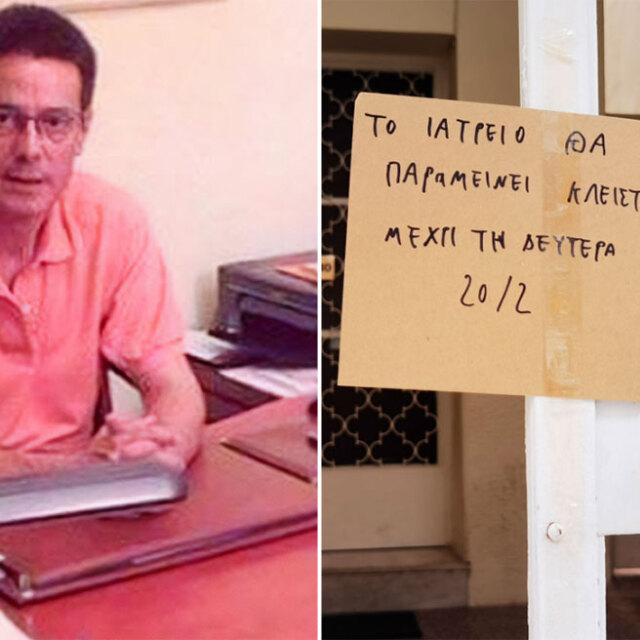 ΤΟ ΙΑΤΡΕΙΟ ΘΑ
ΠΑΡαΜΕΙΝΕΙ ΚΛΕΙΣΤ
ΜΕΧΡΙ ΤΗ ΔΕΥΤΕΡΑ
20/2